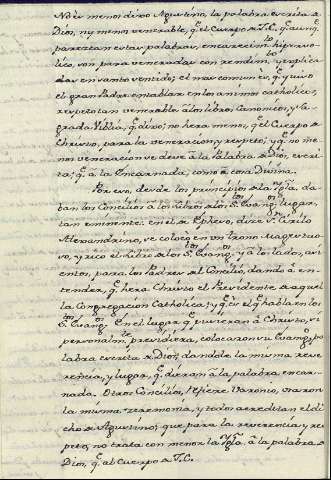 No es menos dixo Agustino, la palabra escrita de
Dios, ny menos venerable, q.e el Cuerpo de J.C. q.e aunq.e
parezcan estas palabras, encarecim.to hipervo-
lico, son para veneradas con rendim.to y esplica-
das en santo sentido; el mas comun es, q.e quiso
el gran Padre entablar en los animos catholicos,
respeto tan venerable a los libros Canonicos, y Sa-
grada Biblia, q.e dixo; no hera menos, q.e el Cuerpo de
Christo, para la veneracion y respeto, y q.e no me-
nos veneracion se deve â la Palabra de Dios, escri-
ta, q.e â la Encarnada, como a cosa Divina.
Por eso, desde los principios de la Ygl.a, da-
ban los Concilios â los libros de los S.tos Evang.os lugar,
tan eminente: en el de Epheso, dice S.n Cirilo
Alexandrino, se colocô en un trono Magestuo-
so, y rico el libro de los S.tos Evang.os y â los lados, asi
entos, para los Padres del Concilio, dando â en-
tender, q.e hera Christo el Presidente de aquel
la Congregacion Catholica; y q.e es el q.e habla en los
S.tos Evang.os En el lugar q.e pusieran â Christo, si
personalm.te presidiera, colocaron su Evang.o, pa
labra escrita de Dios, dandole la misma reve-
rencia, y lugar, q.e dieran â la palabra encar-
nada. Otros Concilios, refiere Baronio, usaron
la misma zeremonia, y todos acreditan el di
cho de Agustino; que para la reverencia y res
peto, no trata con menor la Ygl.a â la palabra de
Dios, q.e al Cuerpo de J.C.